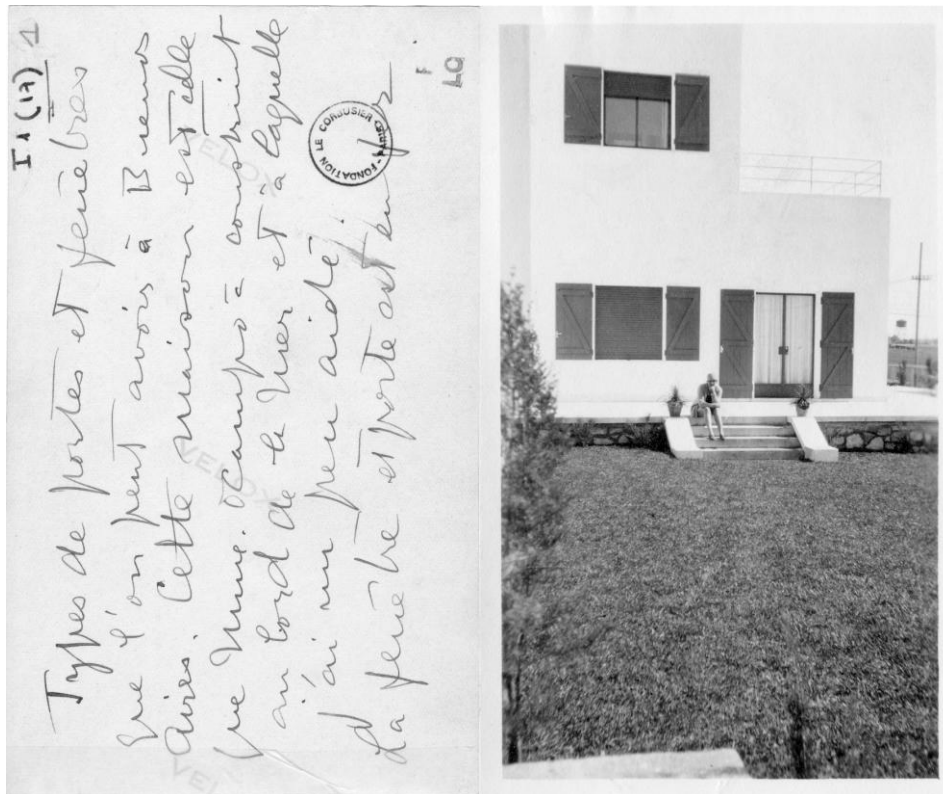 I 1 (17) 1
Types de portes et fenêtres
que l'on peut avoir à Buenos
Aires. Cette maison est celle
que Mme. Ocampo a construit
au bord de la mer et à laquelle
j'ai un peu aidé.
La fenêtre et porte est en fer
FONDATION LE CORBUSIER
VELOX
VELOX
VEL